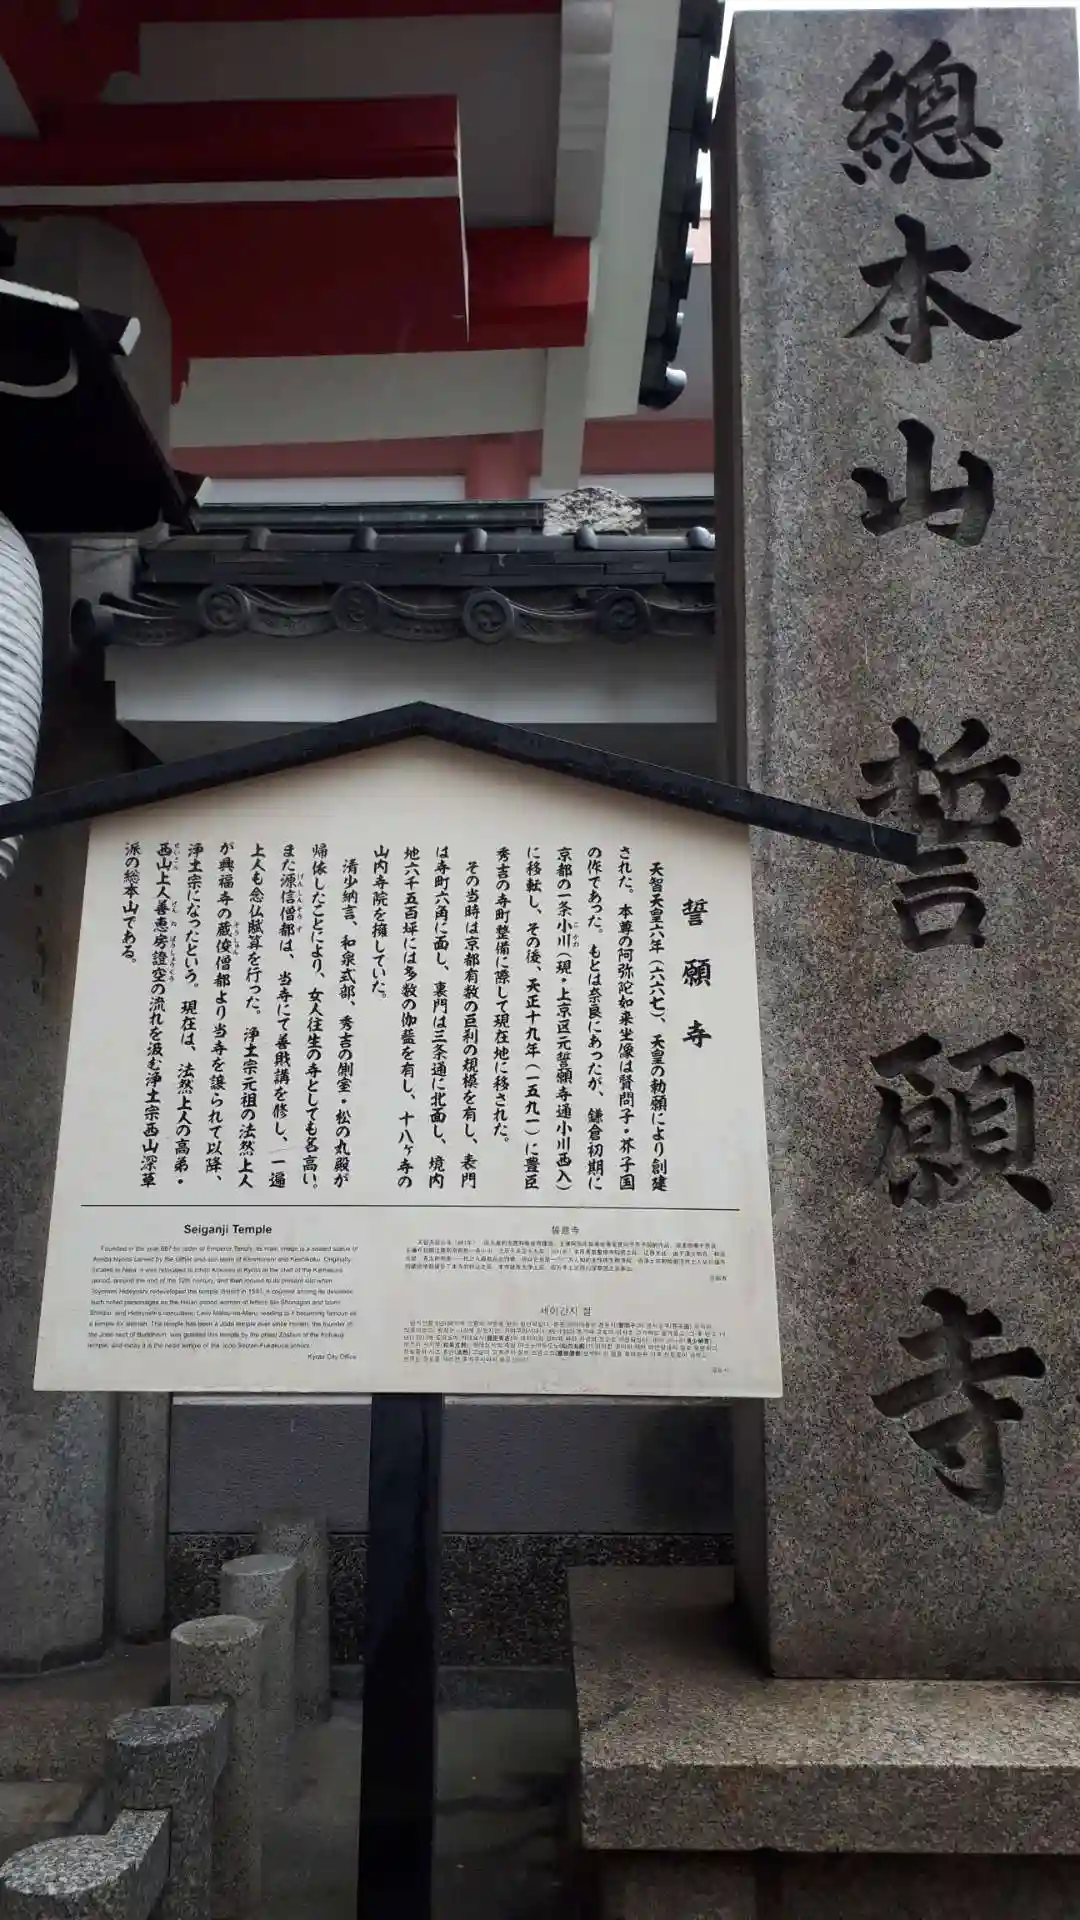 總本山 誓願寺
誓願寺
天智天皇六年（六六七）、天皇の勅願により創建
された。本尊の阿弥陀如来坐像は賢問子・芥子国
の作であった。もとは奈良にあったが、鎌倉初期に
京都の一条小川（現・上京区元誓願寺通小川西入）
に移転し、その後、天正十九年（一五九一）に豊臣
秀吉の寺町整備に際して現在地に移された。
その当時は京都有数の巨刹の規模を有し、表門
は寺町六角に面し、裏門は三条通に北面し、境内
地六千五百坪には多数の伽藍を有し、十八ヶ寺の
山内寺院を擁していた。
清少納言、和泉式部、秀吉の側室・松の丸殿が
帰依したことにより、女人往生の寺としても名高い。
また源信僧都は、当寺にて善財講を修し、一遍
上人も念仏賦算を行った。浄土宗元祖の法然上人
が興福寺の蔵俊僧都より当寺を譲られて以降、
浄土宗になったという。現在は、法然上人の高弟・
西山上人善恵房證空の流れを汲む浄土宗西山深草
派の総本山である。
Seiganji Temple
Founded in the year 667 by order of Emperor Tenchi, its main image is a seated statue of
Amida Nyorai carved by the father and son team of Kenmonshi and Keshikoku. Originally
located in Nara, it was relocated to Ichijō Kogawa in Kyoto at the start of the Kamakura
period, around the end of the 12th century, and then moved to its present site when
Toyotomi Hideyoshi redeveloped the temple district in 1591. It counted among its devotees
such noted personages as the Heian period women of letters Sei Shonagon and Izumi
Shikibu, and Hideyoshi's concubine, Lady Matsu-no-Maru, leading to it becoming famous as
a temple for women. The temple has been a Jodo temple ever since Honen, the founder of
the Jodo sect of Buddhism, was granted this temple by the priest Zoshun of the Kofukuji
temple, and today it is the head temple of the Jodo Seizan-Fukakusa school.
Kyoto City Office
誓愿寺
세이간지 절